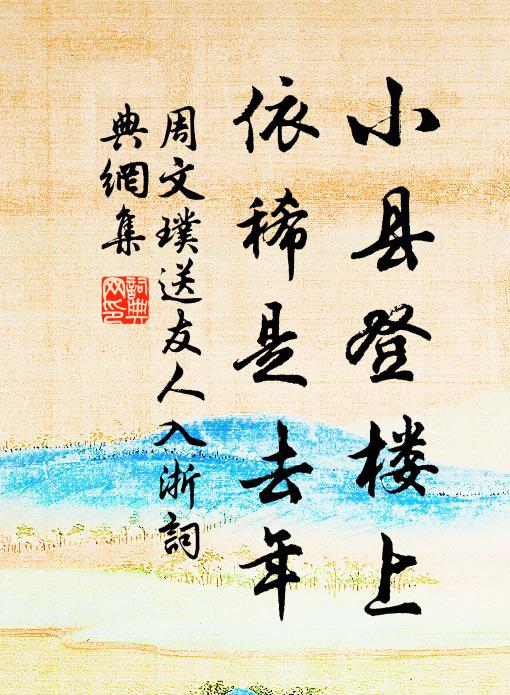 小县登楼上
依稀是去年
周文璞送友人入浙詞
典網集
詞典
网印